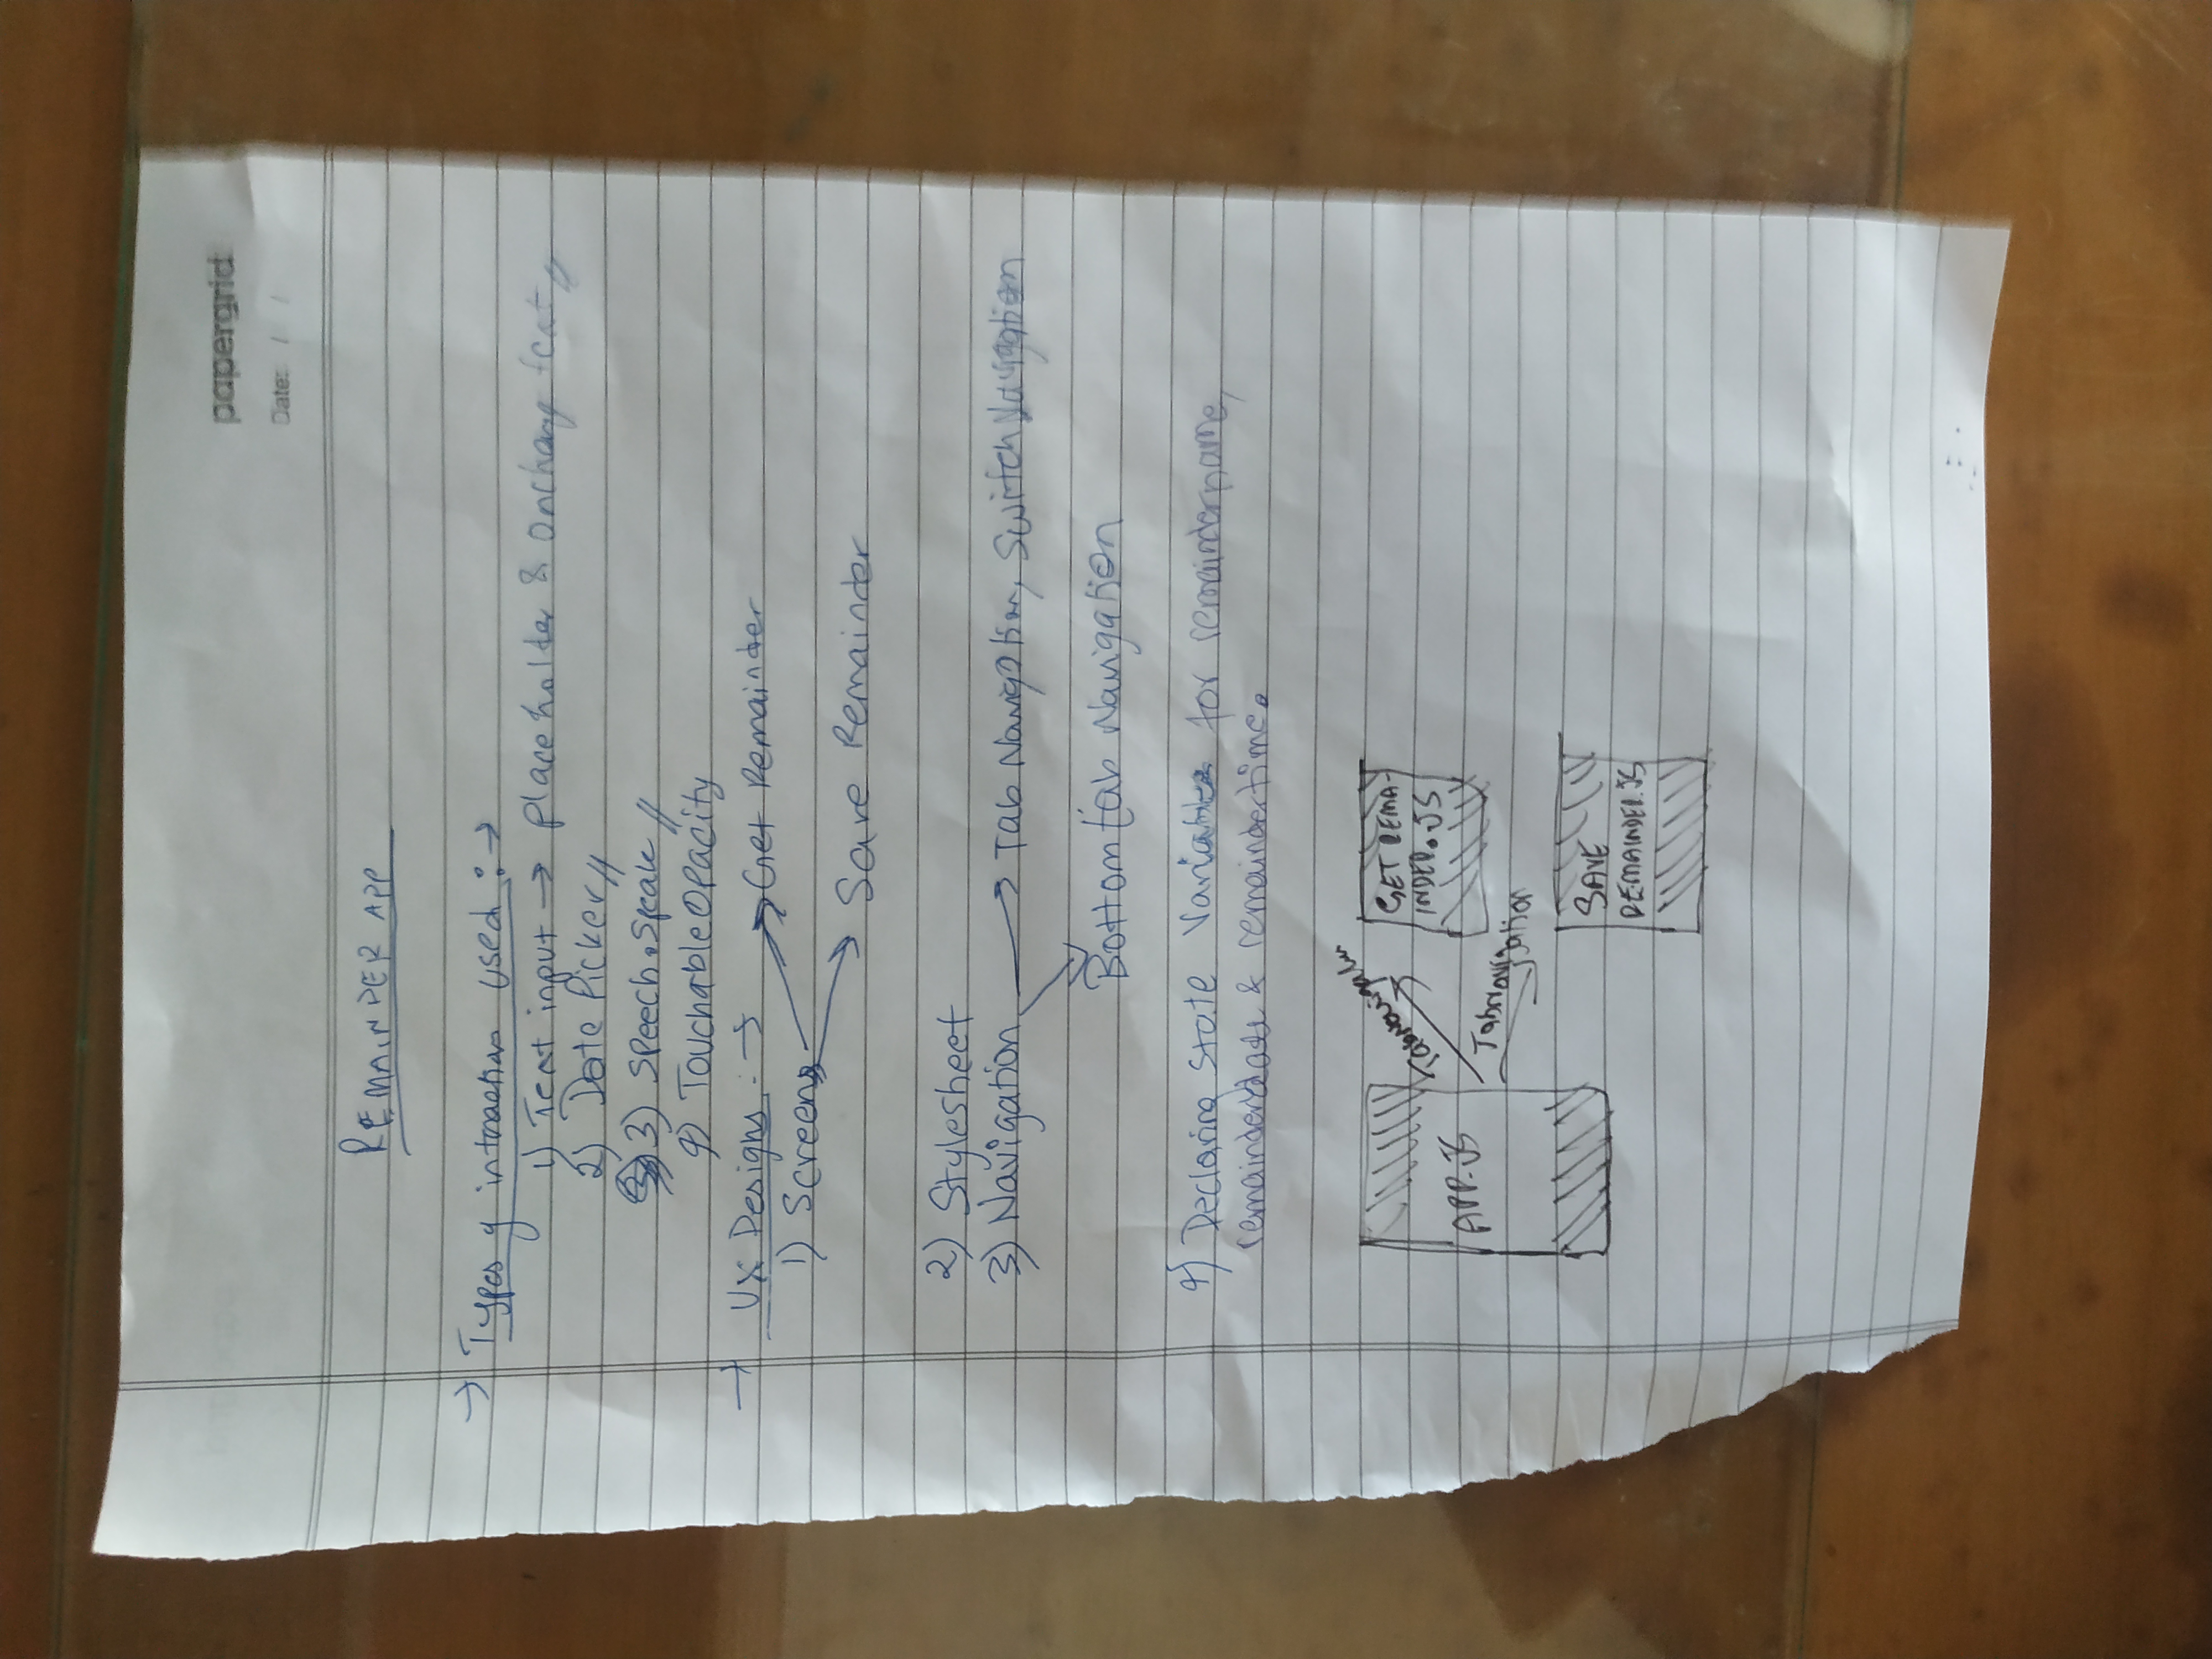 papergrid
Date: / /
REMAINDER APP
→ Types of intraction used :→
1) Text input → placeholder & Onchang text //
2) Date Picker //
3) Speech.Speak //
4) TouchableOpacity
→ UX Designs :→
1) Screens → Get Remainder
→ Save Remainder
2) Stylesheet
3) Navigation → Tab Navigation, Switch Navigation
Bottom tab Navigation
4) Declaring state Variables for remaindername,
remainderdate & remaindertime.
APP.JS
TabNavigation
GET REMA-
INDER.JS
TabNavigation
SAVE
REMAINDER.JS